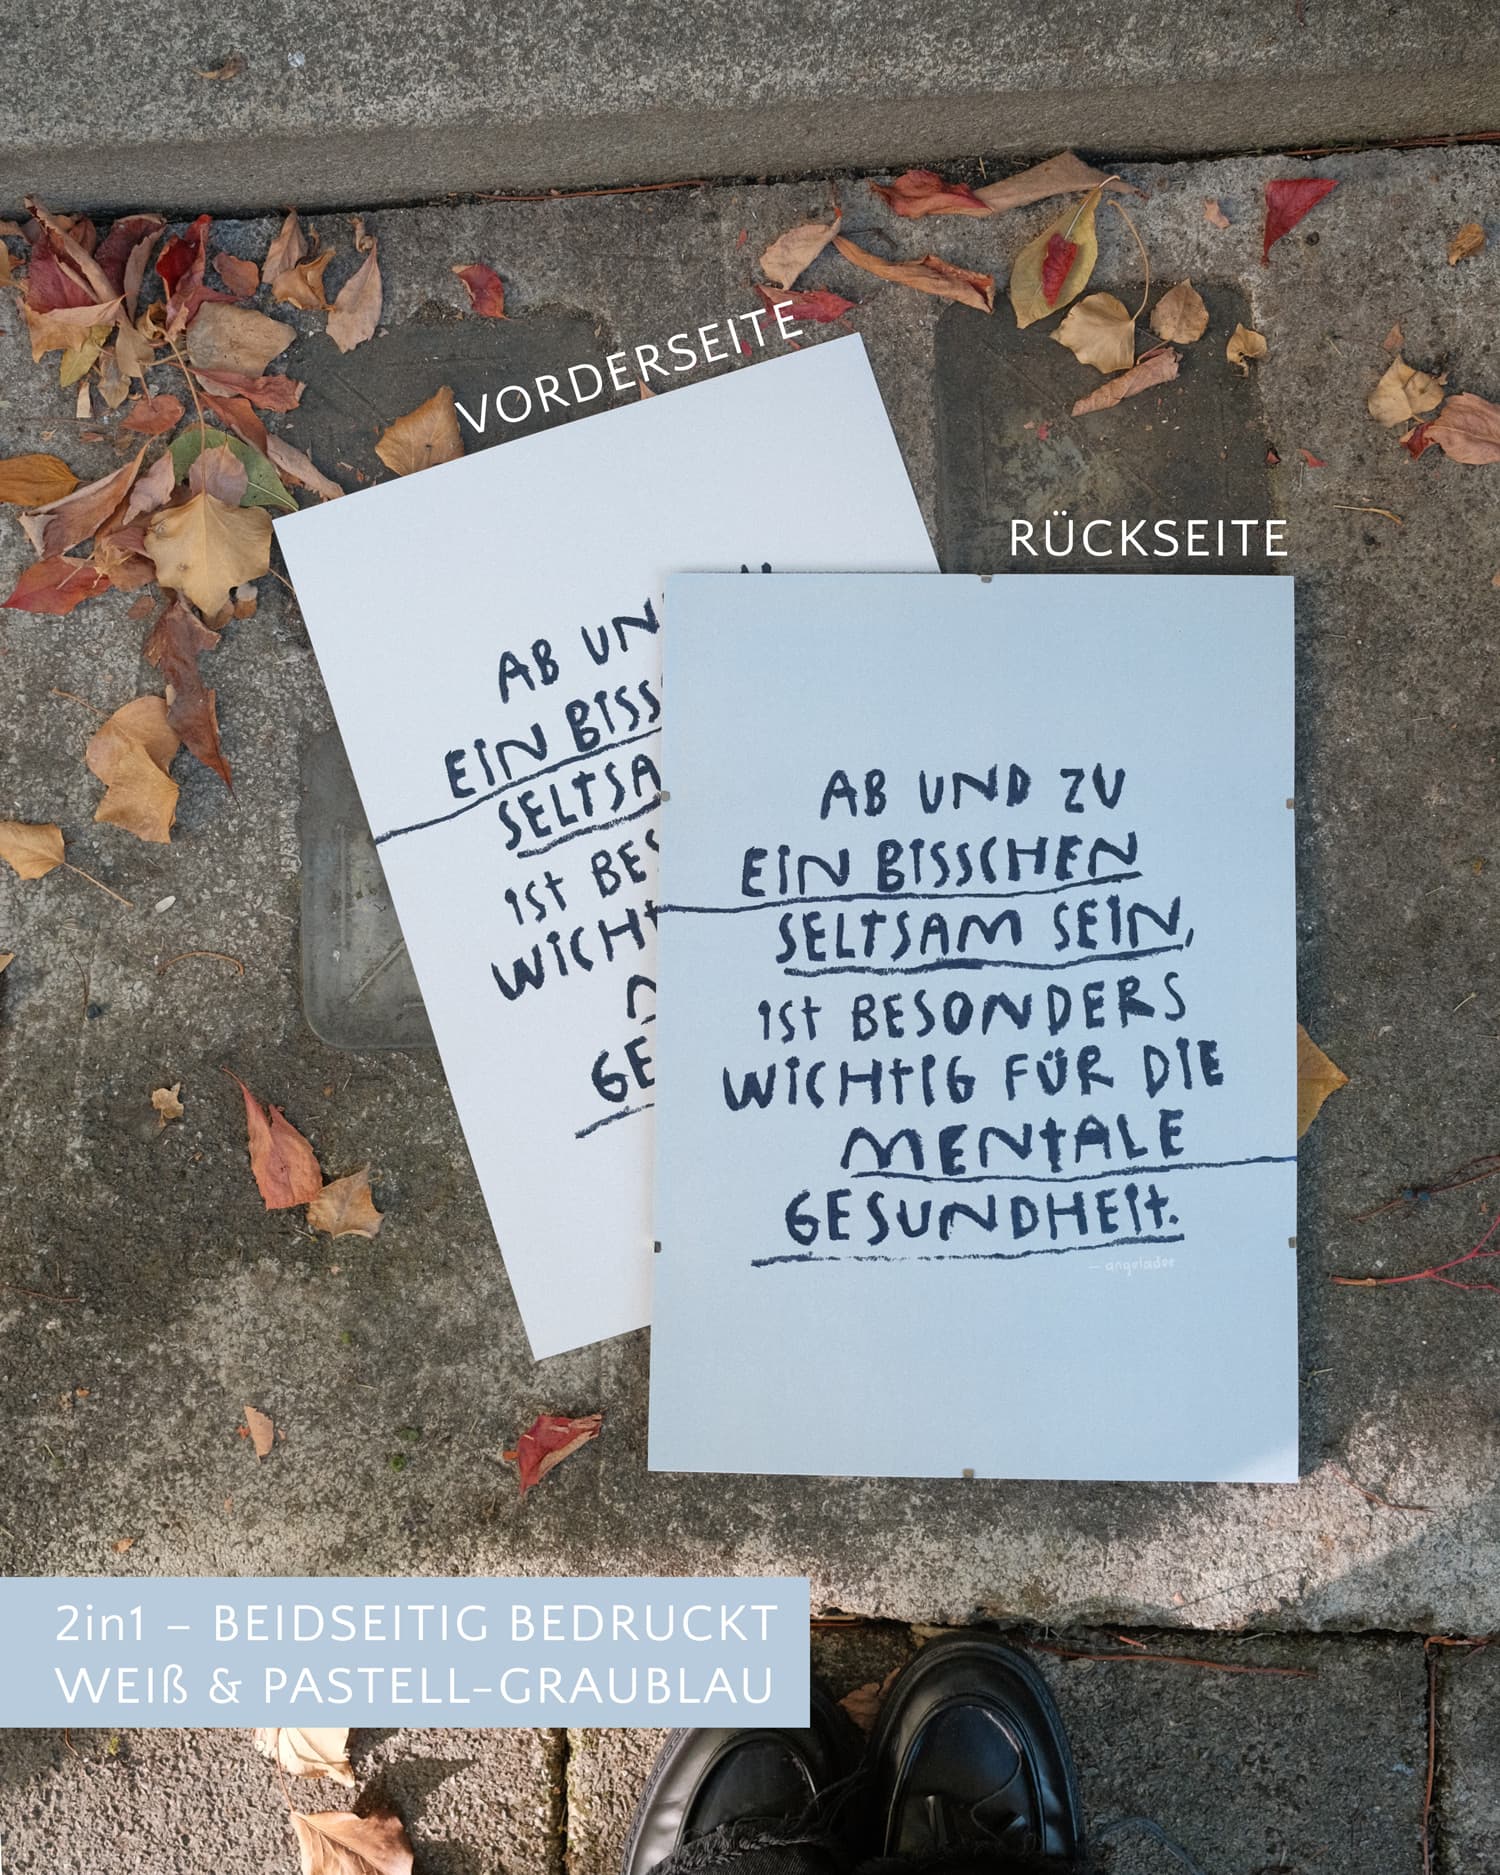 VORDERSEITE
RÜCKSEITE
AB UN
EIN BISS
SELTSA
ist BES
WiCHt
GE
AB UND ZU
EIN BISSCHEN
SELTSAM SEIN,
ist BESONDERS
WiCHtIG FÜR DIE
MENtALE
GESUNDHEit.
– angeladoe
2in1 – BEIDSEITIG BEDRUCKT
WEIß & PASTELL-GRAUBLAU